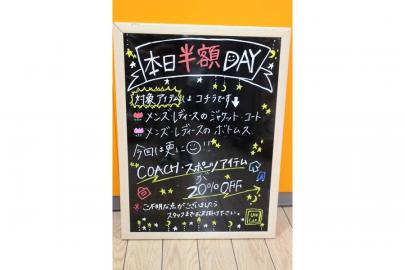 本日半額DAY
対象アイテムはコチラです
メンズ・レディースのジャケット・コート
メンズ・レディースのボトムス
今回は更に!!
COACH・スポーツアイテム
が
20%OFF
※ご不明な点がございましたら
スタッフまでお声掛け下さい。